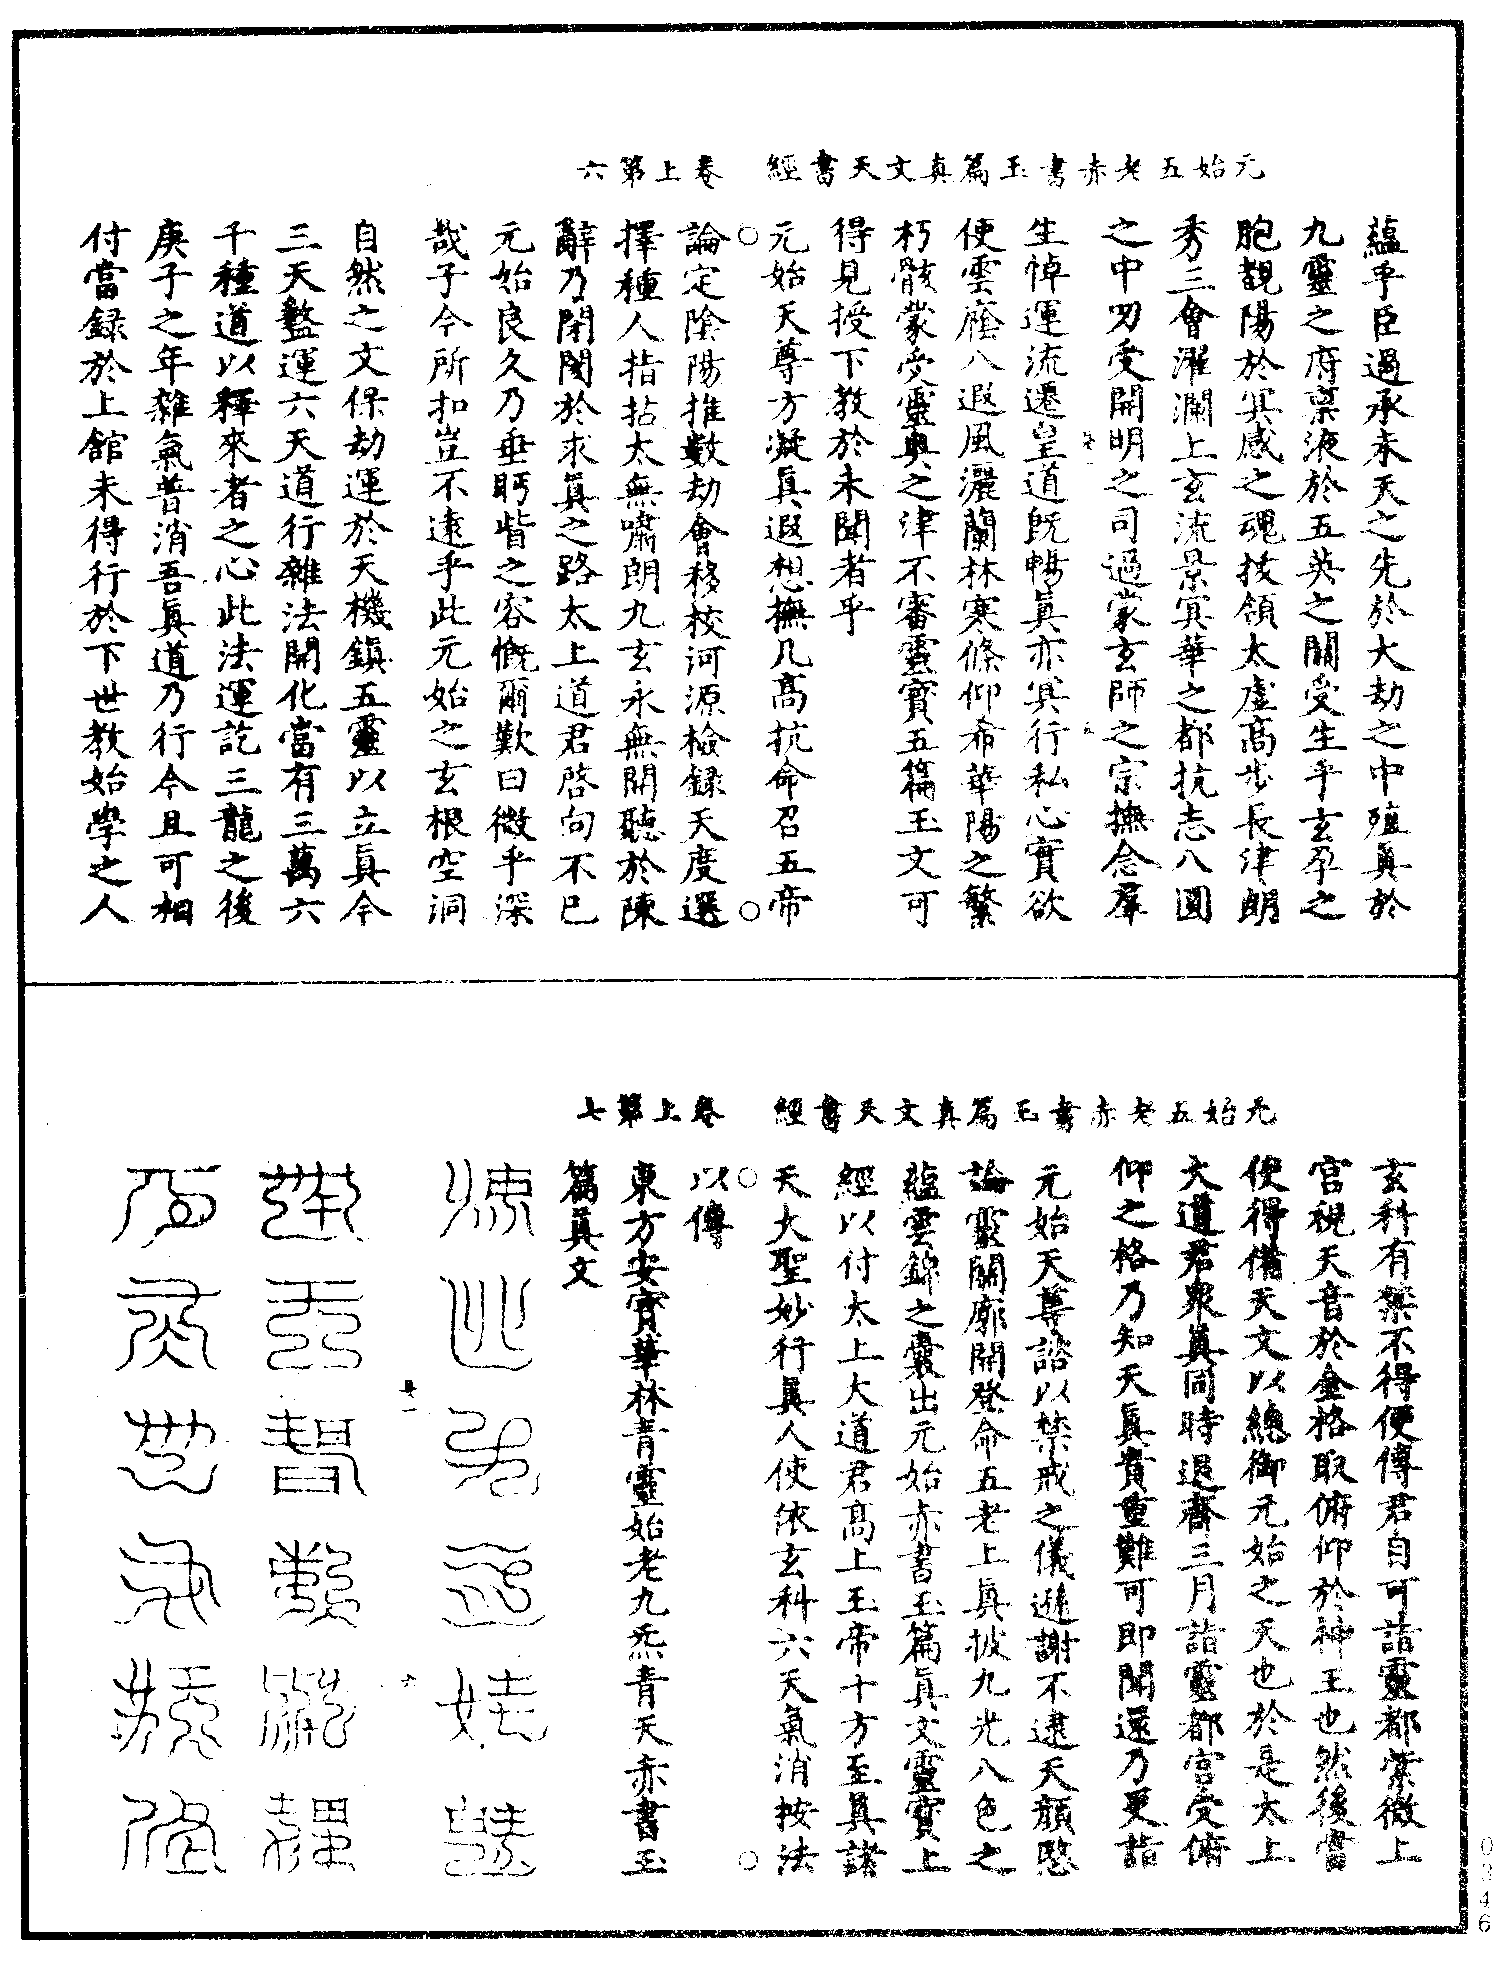 元始五老赤書玉篇真文天書經　卷上第六
蘊乎臣過承未天之先於大劫之中殖真於
九靈之府稟液於五英之關受生乎玄孕之
胞覩陽於冥感之魂拔領太虛高步長津朗
秀三會濯瀾上玄流景冥華之都抗志八圓
之中叨受開明之司過蒙玄師之宗撫念羣
生悼運流遷皇道既暢真亦冥行私心實欲
使雲廕八遐風灑蘭林寒條仰希華陽之繁
朽骸蒙受靈奧之津不審靈寶五篇玉文可
得見授下教於未聞者乎
元始天尊方凝真遐想撫几高抗命召五帝
論定陰陽推數劫會移校河源檢錄天度選
擇種人指拈太無嘯朗九玄永無開聽於陳
辭乃閉閡於求真之路太上道君啓向不已
元始良久乃垂眄眥之容慨爾歎曰微乎深
哉子今所扣豈不遠乎此元始之玄根空洞
自然之文保劫運於天機鎮五靈以立真今
三天盤運六天道行雜法開化當有三萬六
千種道以釋來者之心此法運訖三龍之後
庚子之年雜氣普消吾真道乃行今且可相
付當錄於上館未得行於下世教始學之人
元始五老赤書玉篇真文天書經　卷上第七
玄科有禁不得便傳君自可詣靈都紫微上
宮視天音於金格取俯仰於神王也然後當
使得備天文以總御元始之天也於是太上
大道君衆真同時退齋三月詣靈都宮受俯
仰之格乃知天真貴重難可即聞還乃更詣
元始天尊諮以禁戒之儀遜謝不逮天顏愍
論靈關廓開登命五老上真披九光八色之
蘊雲錦之囊出元始赤書玉篇真文靈寶上
經以付太上大道君高上玉帝十方至真諸
天大聖妙行真人使依玄科六天氣消按法
以傳
東方安寶華林青靈始老九炁青天赤書玉
篇真文
0346